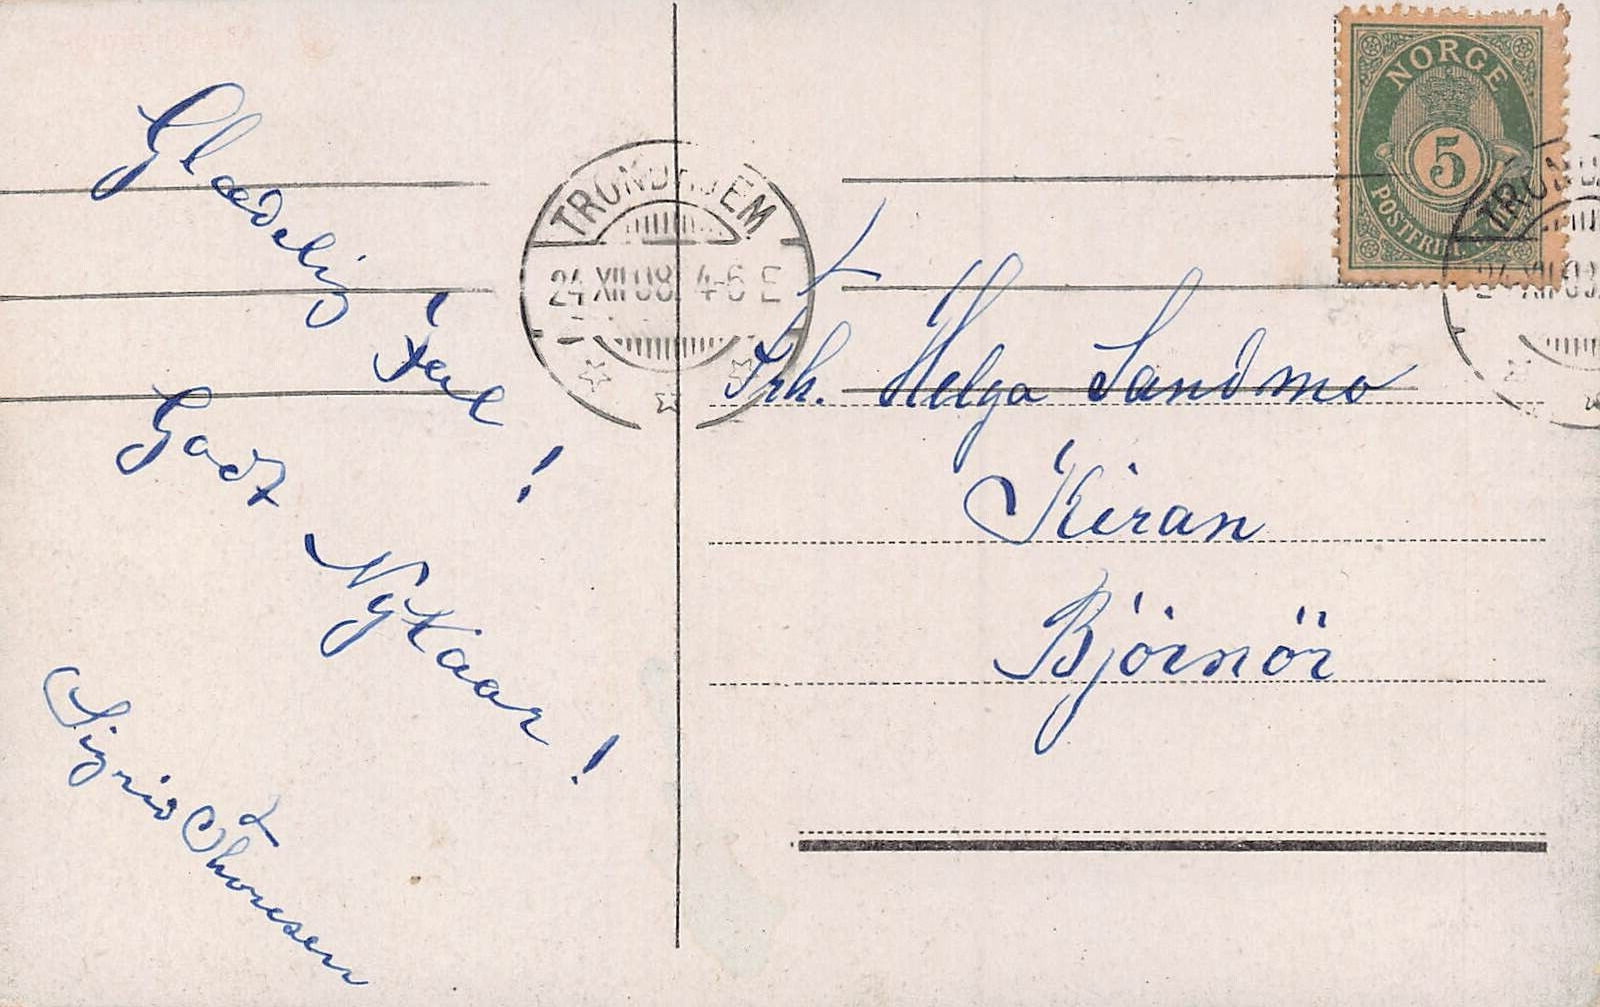 Glædelig Jul!
Godt Nytaar!
Sigrid Thoresen
TRONDHJEM
24 XII 08. 4-6 E
NORGE
5
POSTFRIM.
TRON
24 XII 08
Frk. Helga Sandmo
Kiran
Björnör